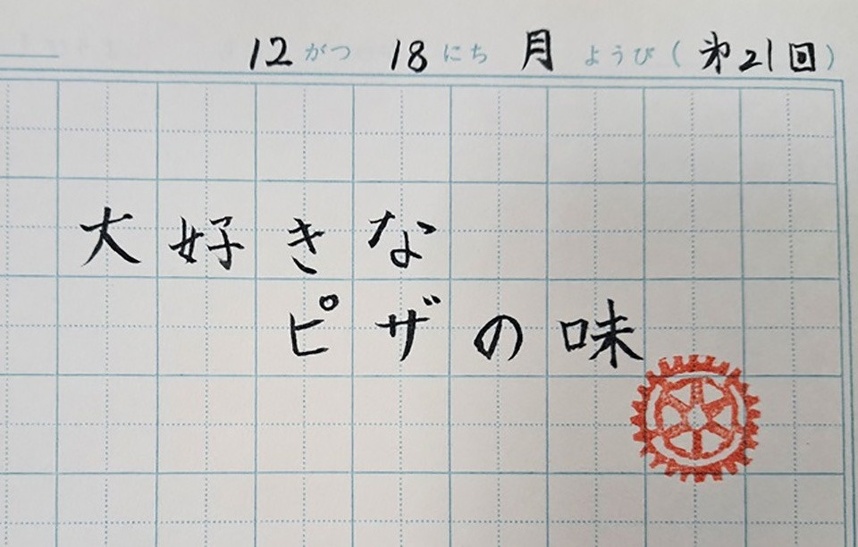 12 がつ 18 にち 月 ようび（第21回）
大好きな
ピザの味